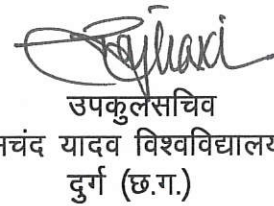 उपकुलसचिव
चंद यादव विश्वविद्यालय
दुर्ग (छ.ग.)